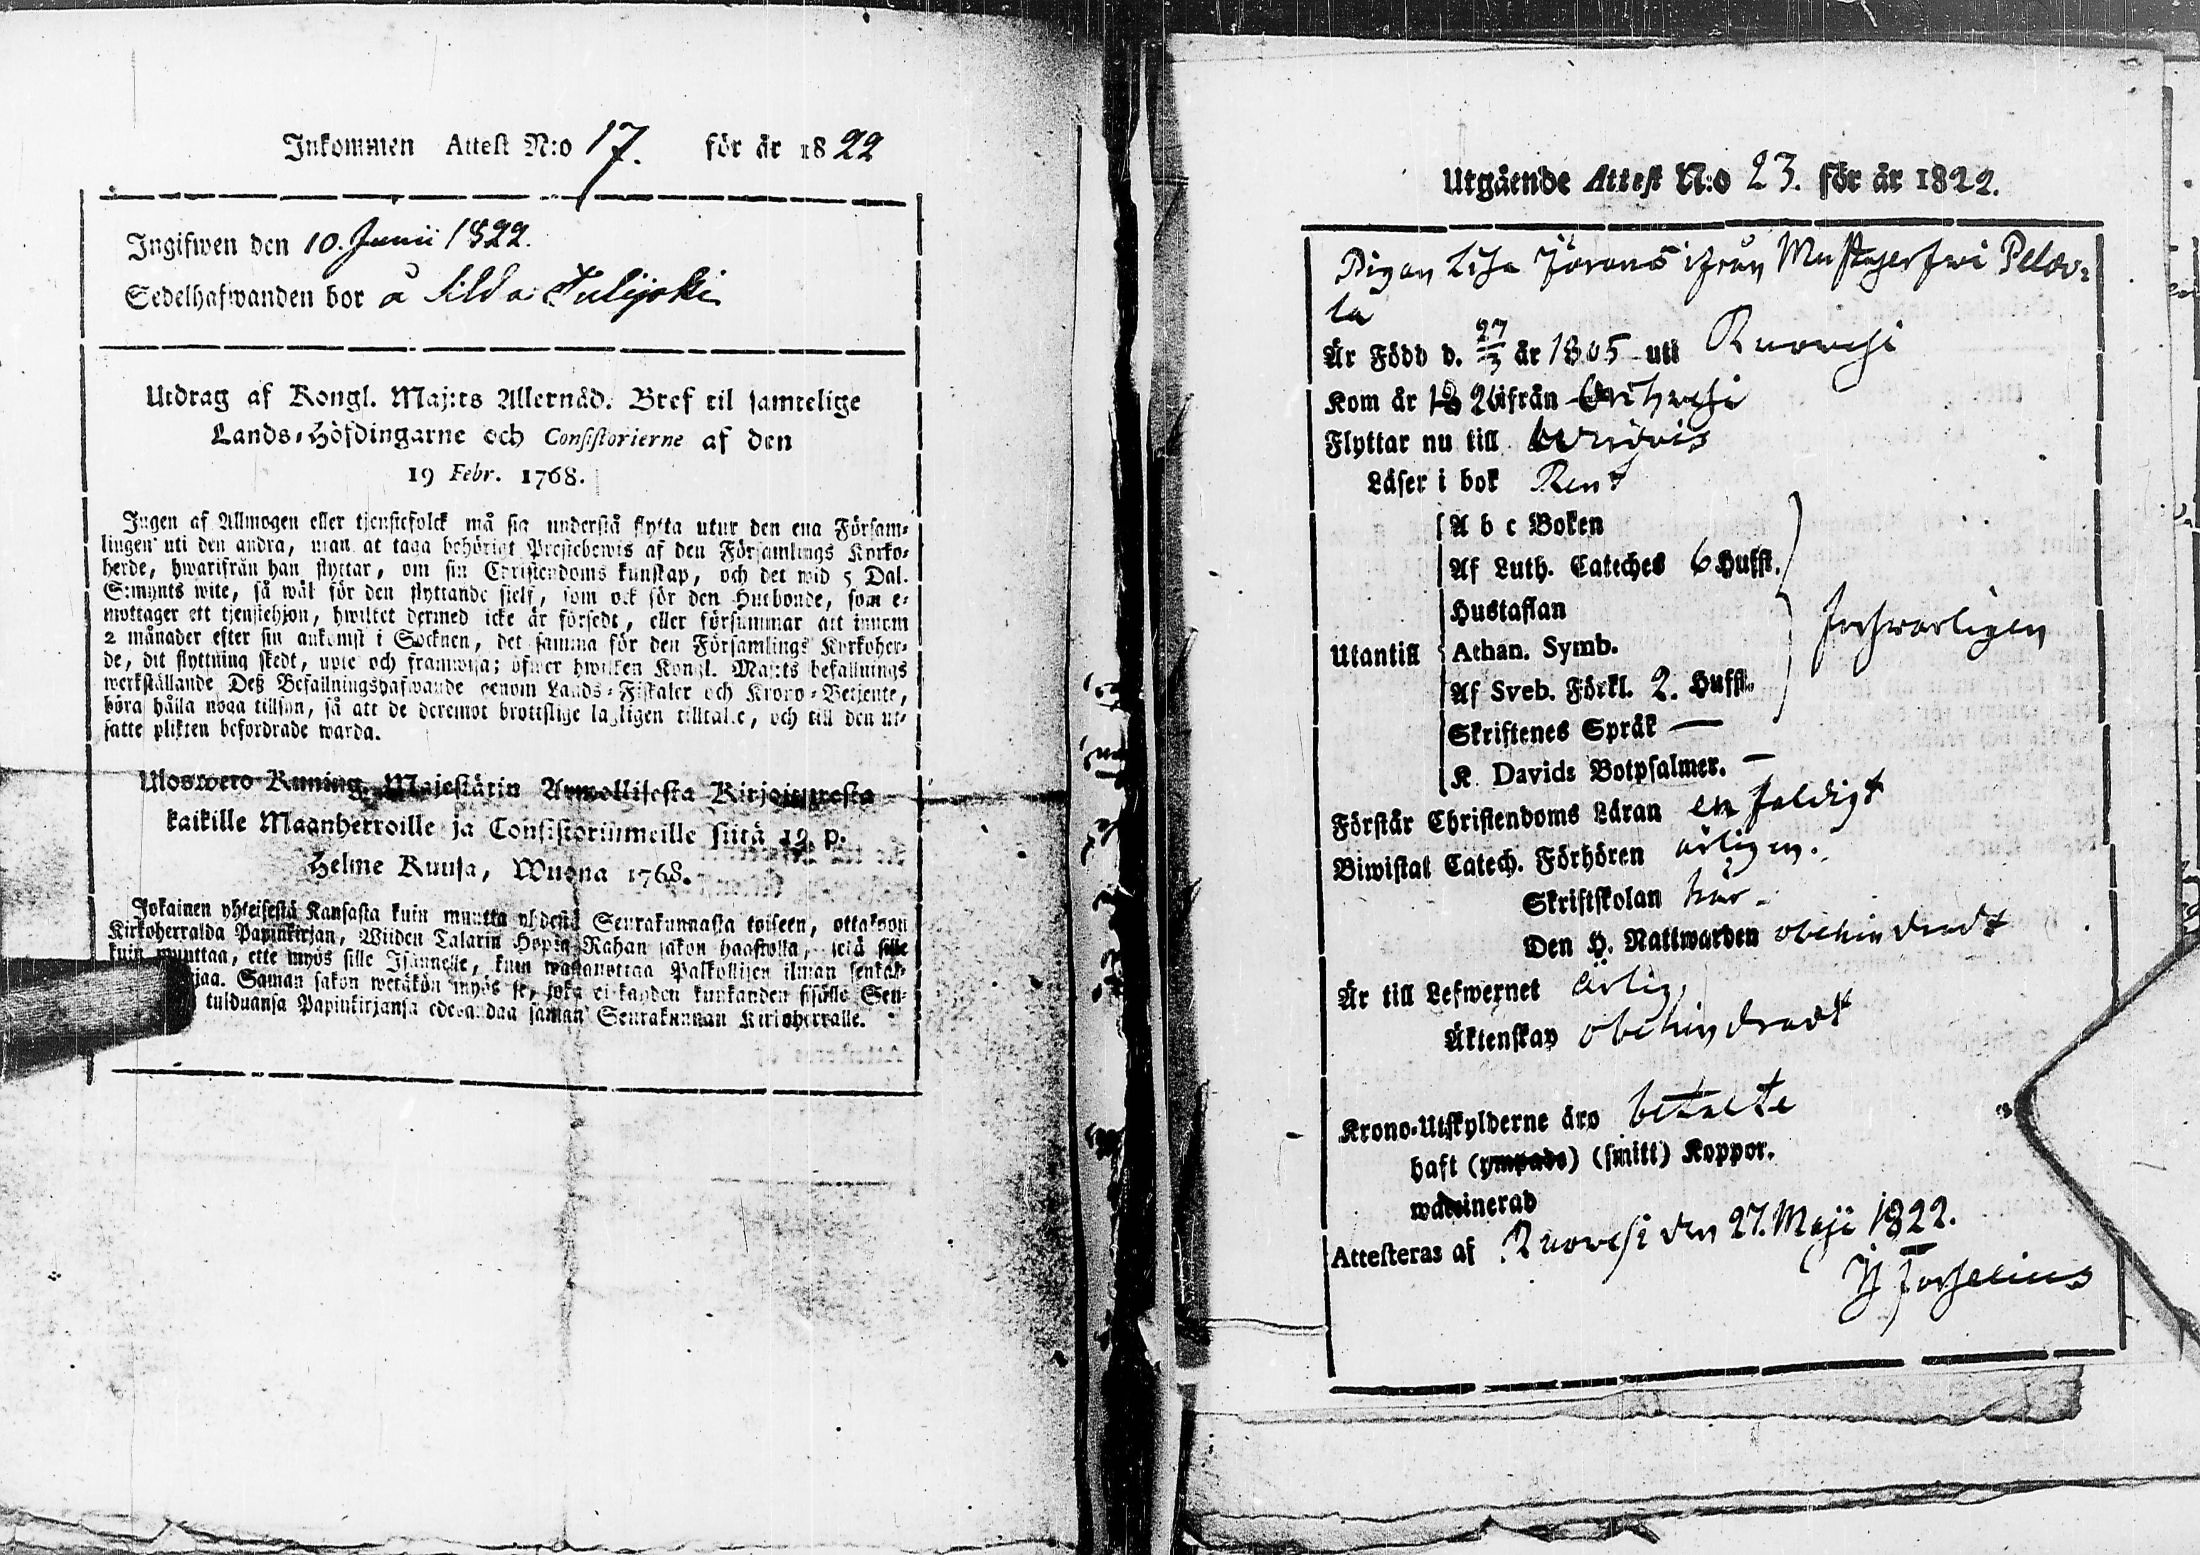 Inkommen Attest N:o 17. för år 1822
Ingifwen den 10. Junii 1822.
Sedelhafwanden bor å Julijoki
Utdrag af Kongl. Maj:ts Allernåd. Bref til samtelige
Lands-Höfdingarne och Consistorierne af den
19 Febr. 1768.
Ingen af Allmogen eller tjenstefolck må sig understå flytta utur den ena Försam-
lingen uti den andra, utan at taga behörigt Prestebewis af den Församlings Kyrko-
herde, hwarifrån han flyttar, om sin Christendoms kunskap, och det wid 5 Dal.
S:mynts wite, så wäl för den flyttande sielf, som ock för den Husbonde, som e-
mottager ett tjenstehjon, hwilket dermed icke är försedt, eller försummar att innom
2 månader efter sin ankomst i Socknen, det samma för den Församlings Kyrkoher-
de, dit flyttning skedt, upte och framwisa; öfwer hwilken Kongl. Maj:ts befallnings
werkställande Deß Befallningshafwande genom Lands-Fiskaler och Krono-Betjente,
böra hålla noga tillsyn, så att de deremot brottslige lagligen tilltalte, och till den ut-
satte plikten befordrade warda.
Uloswero Kuning. Majestätin Armollisesta Kirjoituxesta
kaikille Maanherroille ja Consistoriumeille siitä 19. p.
Helme Kuusa, Wuona 1768.
Jokainen yhteisestä Kansasta kuin muutta yhdestä Seurakunnasta toiseen, ottakoon
Kirkoherralda Papinkirjan, Wiiden Talarin Hopia-Rahan sakon haastolla, sekä sille
kuin muuttaa, ette myös sille Isännelle, kuin wastanottaa Palkollisen ilman senkal-
jaa. Saman sakon wetäkön myös se, joka ei kahden kuukauden sisällä Seu-
tulduansa Papinkirjansa edesandaa saman Seurakunnan Kirkoherralle.
Utgående Attest N:o 23. för år 1822.
Pigan Lisa Jörans ifrån Mustajerfwi
la
Är Född d. 27/3 år 1805 uti Ruovesi
Kom år ifrån
Flyttar nu till
Läser i bok Rent
A b c Boken
Af Luth. Cateches 6 Hufst.
Hustaflan
Utantill Athan. Symb. Försvarligen
Af Sveb. Förkl. 2. Hufst.
Skriftenes Språk —
K. Davids Botpsalmer. —
Förstår Christendoms Läran enfaldigt
Biwistat Catech. Förhören årligen.
Skriftskolan här.
Den H. Nattwarden obehindradt
Är till Lefwernet ärlig.
Äktenskap obehindradt
Krono-Utskylderne äro betalte
haft (ympade) (smitt) Koppor.
waccinerad
Attesteras af Ruovesi den 27. Maji 1822.